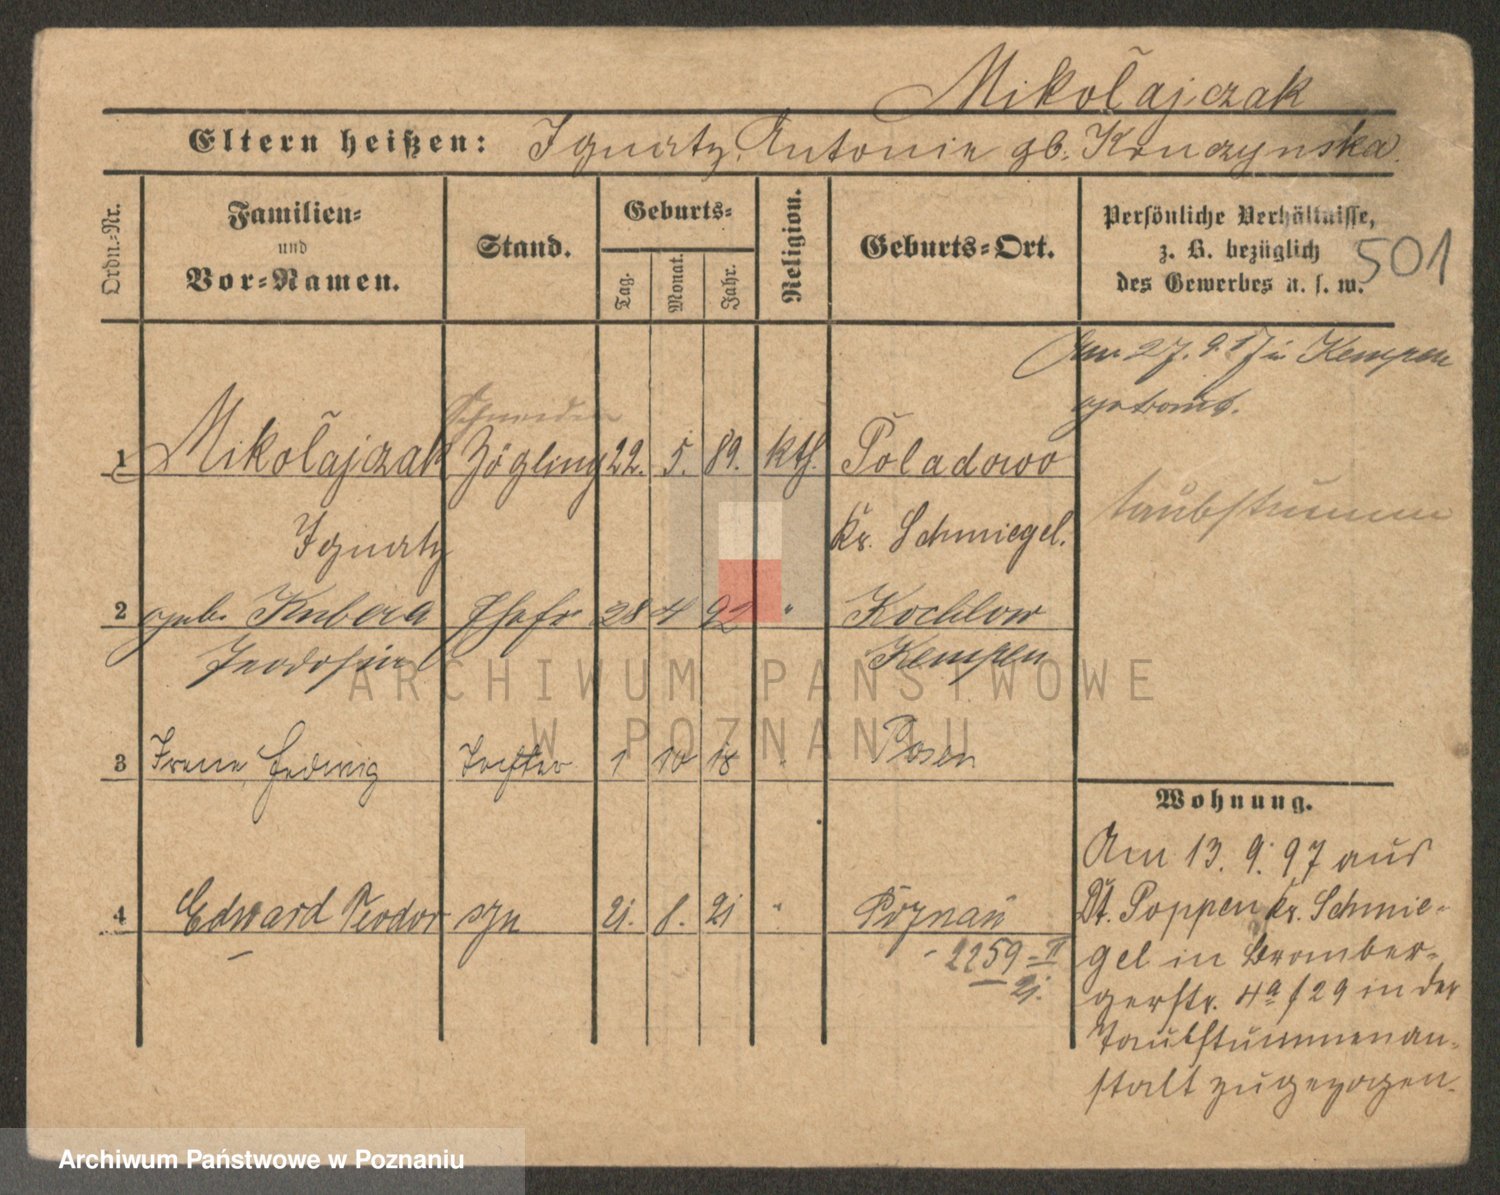 Mikołajczak
Eltern heißen: Ignatz, Antonie gb. Konczynska.
Ordn.-Nr.
Familien- und Vor-Namen.
Stand.
Geburts-
Tag.
Monat.
Jahr.
Religion.
Geburts-Ort.
Persönliche Verhältnisse,
z. B. bezüglich
des Gewerbes u. s. w.
501
Am 27. 9. 17 in Kempen
getraut.
Schneider
1 Mikołajczak Zögling 22. 5. 89. kth. Poladowo
taubstumm
Ignatz Kr. Schmiegel.
2 geb. Kubera Ehefr 28 4 92 " Kochlow
Teodosia Kempen
3 Irene, Hedwig Tochter 1 10 18 " Posen
Wohnung.
Am 13. 9. 97 aus
4 Edward Teodor syn 21. 8. 21 " Poznań
Dt. Poppen Kr. Schmie-
2259 = II
21.
gel in Bromber-
gerstr. 4a / 29 in der
Taubstummenan-
stalt zugezogen.
ARCHIWUM PAŃSTWOWE
W POZNANIU
Archiwum Państwowe w Poznaniu